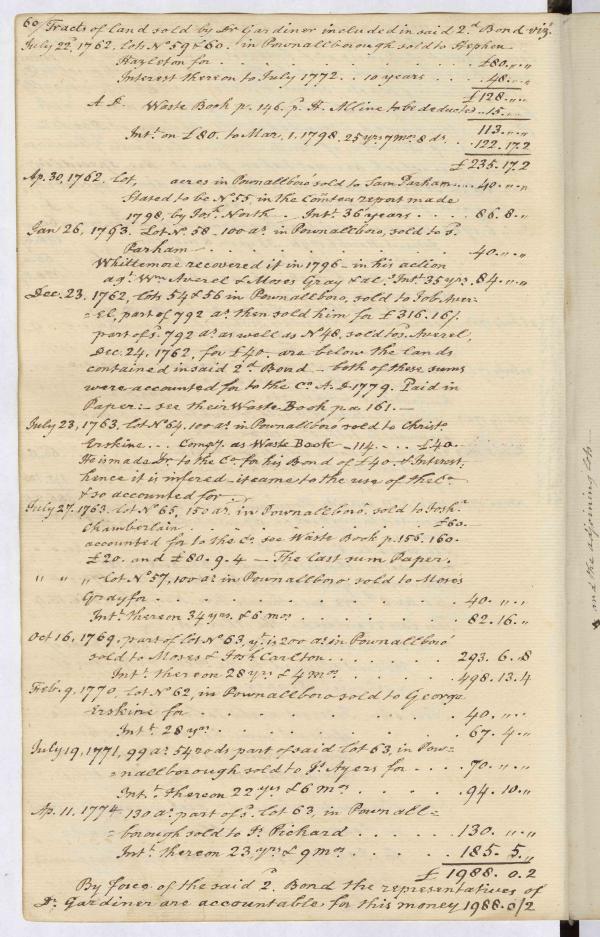 60/ Tracts of land sold by Dr Gardiner included in said 2.d Bond viz.
July 22, 1762. Lots No 59 & 60. in Pownallborough sold to Stephen
Hazleton for . . . . £80. " "
Interest thereon to July 1772 . . 10 years . . . 48. " "
£128. " "
A. D. Waste Book p. 146. p. H. Alline to be deducted . . 15. " "
113. " "
Int.t on £80. to Mar. 1. 1798. 25 yrs 7 mo. 8 ds. . . 122. 17 2
£235. 17. 2
Ap. 30, 1762. Lot, acres in Pownallboro' sold to Sam. Parham . . . . 40. " "
Stated to be No 55, in the Comtees report made
1798, by Jos.h North . . Int.t 36 years . . . . 86. 8. "
Jan 26, 1763. Lot No 58 . 100 as. in Pownallboro, sold to sd.
Parham . . . . 40. " "
Whittemore recovered it in 1796 – in his action
agt. Wm Averel & Moses Gray & al. Int.t 35 yrs. 84. " "
Dec. 23, 1762, lots 54 & 56 in Pownallboro, sold to Job Aver=
=el, part of 792 as. then sold him for £316. 16/.
part of sd. 792 as. as well as No 48, sold to sd. Averel,
Dec. 24, 1762, for £40, are below the lands
contained in said 2d Bond – both of these sums
were accounted for to the Co. A. D 1779. Paid in
Paper: – see their Waste Book pa 161. –
July 23, 1763. Lot No 64, 100 as. in Pownallboro sold to Christo.
Erskine . . . Compy. as Waste Book – 114. – . . £40.
He is made Dr. to the Co. for his Bond of £40. & Interest;
hence it is infered – it came to the use of the Co.
& so accounted for.
July 27. 1763. Lot No 65, 150 as. in Pownallboro', sold to Josha
Chamberlain . . . . £60.
accounted for to the Co. see Waste Book p. 156. 160.
£20. and £80. 9. 4 – The last sum Paper.
" " " Lot No 57, 100 as. in Pownallboro sold to Moses
Gray for . . . . 40. " "
Int.t thereon 34 yrs. & 6 mos. . . . 82. 16. "
Oct 16, 1769. part of lot No 63, yt. is 200 as. in Pownallboro'
sold to Moses & Josh Carlton . . . . 293. 6. 8
Int.t thereon 28 yrs & 4 mos . . . . 498. 13. 4
Feb. 9, 1770. Lot No 62, in Pownallboro sold to George
Erskine for . . . . 40. " "
Int.t 28 yrs. . . . 67. 4. "
July 19, 1771, 99 as. 54 rods part of said lot 63, in Pow=
=nallborough sold to Js. Ayers for . . . 70. " "
Int.t thereon 22 yrs & 6 mos . . . . 94. 10. "
Ap. 11. 1774 130 as. part of sd. lot 63, in Pownall=
=borough sold to Js. Pichard . . . . 130. " "
Int.t thereon 23 yrs & 9 mos . . . . 185. 5. "
£ 1988. 0. 2
By force of the said 2d. Bond the representatives of
Dr. Gardiner are accountable for this money 1988. 0/2
and the adjoining lots